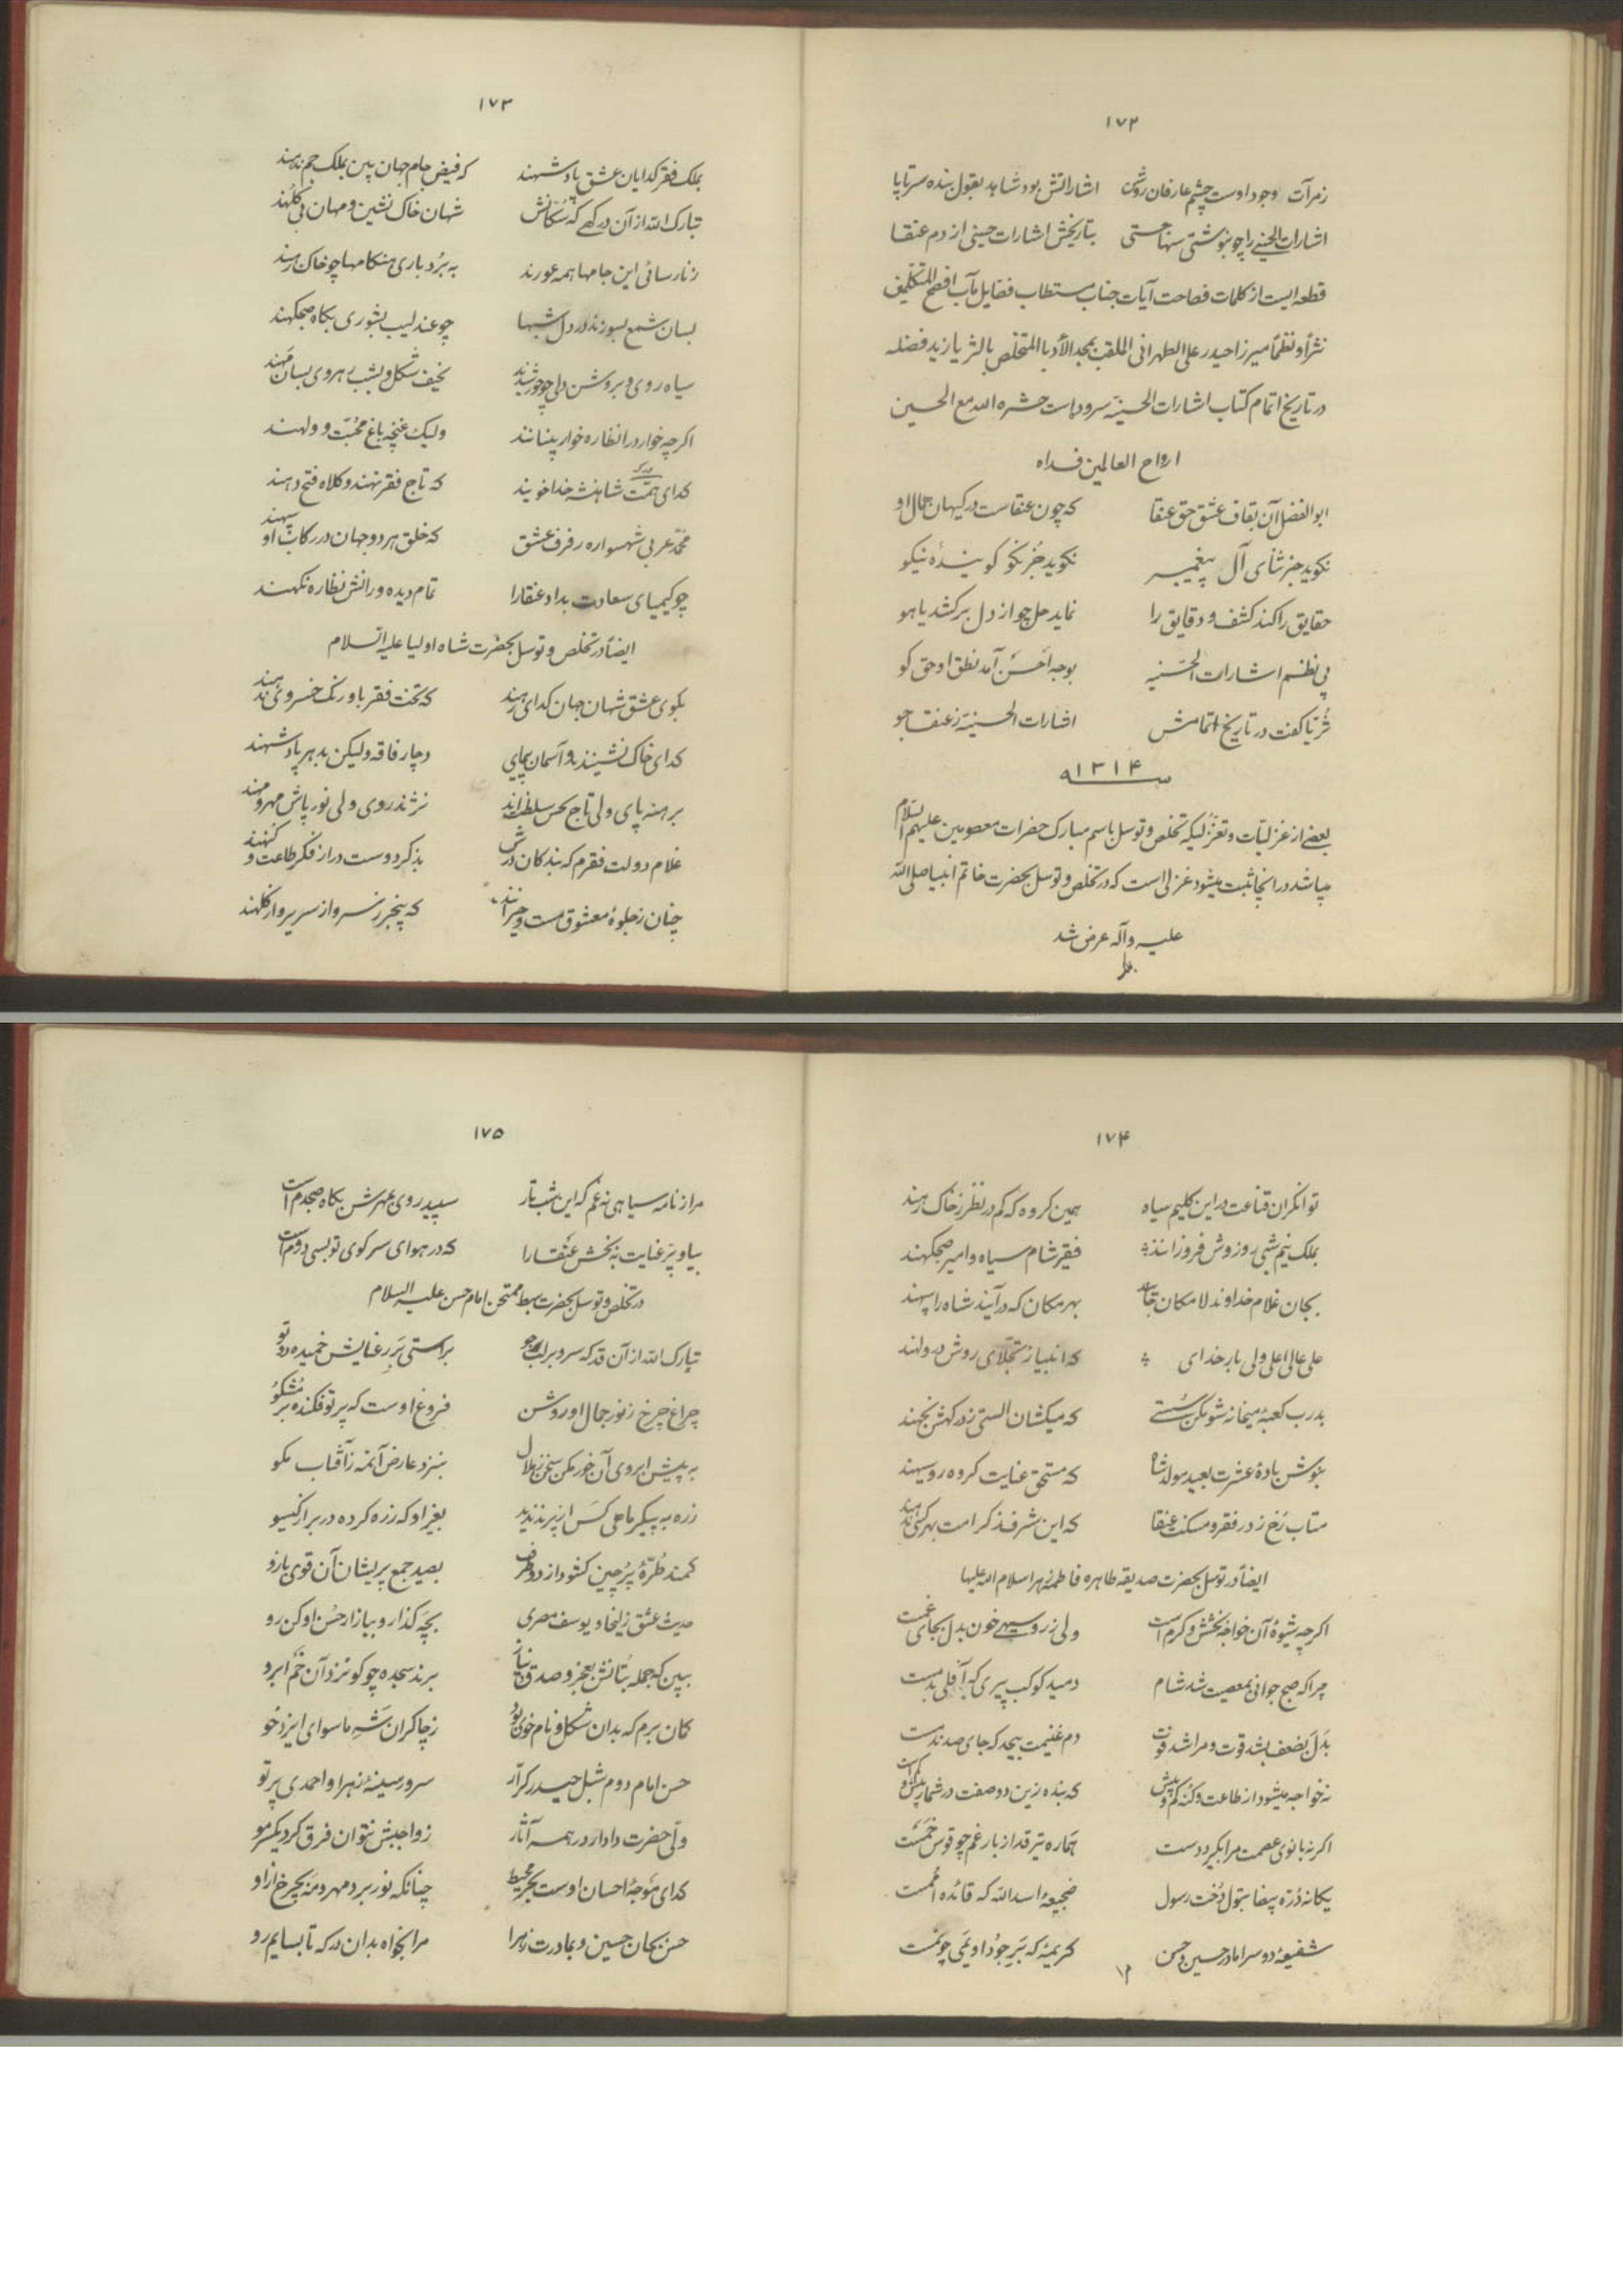 ۱۷۲
زمرآت وجود اوست چشم عارفان روشن اشاراتش بود شاهد بقول بنده سرتاپا
اشارات الحسنیه را چو بنوشتی سها جستی بتاریخش اشارات حسینی از دم عنقا
قطعه ایست از کلمات فصاحت آیات جناب مستطاب فضایل مآب افصح المتکلمین
نثراً و نظماً میرزا حیدر علی الطهرانی الملقب بمجد الأدبا المتخلص بالثریا زید فضله
در تاریخ اتمام کتاب اشارات الحسنیّه سروده است حشره الله مع الحسین
ارواح العالمین فداه
ابوالفضل آن بقاف عشق حق عنقا که چون عنقاست در کیهان جمال او
نکوید جز ثنای آل پیغمبر نکوید جُز نکو کویندهٔ نیکو
حقایق را کند کشف و دقایق را نماید حل چو از دل برکشد یاهو
پی نظم اشارات الحسنیه بوجه اَحسَن آمد نطق او حق کو
ثُریّا کفت در تاریخ اتمامش اشارات الحسنیّه ز عنقا جو
سنه ۱۳۱۴
بعضی از غزلیّات و تغزّلیکه تخلص و توسل باسم مبارک حضرات معصومین علیهم السّلام
میباشد در اینجا ثبت میشود غزلی است که در تخلص و توسل بحضرت خاتم انبیا صلی الله
علیه و آله عرض شد
۱۷۳
بملک فقر کدایان عشق پادشهند که فیض جام جهان بین بملک جم ندهند
تبارک الله از آن درکهی که سُکّانش شهان خاک نشین و مهان بی کُلَهند
ز نارسائی این جامها همه عورند به بُردباری هنکامها چو خاک رهند
بسان شمع بسوزند در دل شبها چو عندلیب بشوری بکاه صبحکهند
سیاه روی و بروشن دلی چو خورشیدند نحیف شکل و بشب رهروی بسان مَهند
اکرچه خوار در انظاره خوار پنسانند ولیک غنچه باغ محبّت و ولهند
کدای همّت شاهنشه خداخویند که تاج فقر نهند و کلاه فتح دهند
محمّد عربی شهسواره رفرف عشق که خلق هر دو جهان در رکاب او سپهند
چو کیمیای سعادت بداد عنقا را تمام دیده ورانش نظاره نکهند
ایضاً در تخلص و توسل بحضرت شاه اولیا علیه السلام
بکوی عشق شهان جهان کدای رهند که تخت فقر باورنک خسروی ندهند
کدای خاک نشینند و آسمان پیمای دچار فاقه ولیکن بدهر پادشهند
برهنه پای ولی تاج بخش سلطانند نژند روی ولی نور پاش مهر و مهند
غلام دولت فقرم که بندکان درش بذکر دوست در از فکر طاعت و کنهند
چنان ز جلوهٔ معشوق مست و حیرانند که بیخبر ز سر و از سریر و از کلهند
۱۷۴
توانکران قناعت در این کلیم سیاه همین کروه که کم در نظر ز خاک رهند
بملک نیم شبی روز وش فروزانند فقیر شام سیاه و امیر صبحکهند
بجان غلام خداوند لامکان جاهند بهر مکان که درآیند شاه را سپهند
علی عالی اعلی ولی بار خدای که انبیا ز تجلّای روش در ولهند
بدرب کعبهٔ میخانه شو مکن سُستی که میکشان الستی ز درکهش نجهند
بنوش بادهٔ عشرت بعید مولد شاه که مستحق عنایت کروه روسیهند
متاب رُخ ز در فقر و مسکنت عنقا که این شرف ز کرامت بهر کسی ندهند
ایضاً در توسل بحضرت صدیقه طاهره فاطمه زهرا سلام الله علیها
اکرچه شیوهٔ آن خواجه بخشش و کرم است ولی ز روسیهی خون بدل بجای غمست
مرا که صبح جوانی بمعصیت شد شام دمید کوکب پیری که آفلی بدمست
بَدَل بضعف بشد قوت و مرا شد فوت دم غنیمت بیحد که جای صد ندمست
نه خواجه میشود از طاعت و کنه کم و بیش که بنده زین دو صفت در شمار بیش و کمست
اکر نه بانوی عصمت مرا بکیرد دست هماره تیر قد از بار غم چو قوس خَمَست
یکانه دُرّه بیضا بتول دُخت رسول ضجیعهٔ اسدالله که قائده اُممست
شفیعهٔ دو سرا مادر حسین و حسن کریمهٔ که بَرِ جودُ او یَمی چو نَمَست
۱۷۵
مرا ز نامه سیاهی نه غم که این شب تار سپید روی بمهرش بکاه صبحدم است
بیا و پرّ عنایت ببخش عَنقا را که در هوای سر کوی تو بسی دژم است
در تخلص و توسل بحضرت سبط ممتحن امام حسن علیه السلام
تبارک الله از آن قد که سرو بر لب جو براستی بَرِ رعنایش خمیده دو تو
چراغ چرخ ز نور جمال او روشن فروغ اوست که پرتو فکنده بر مُشکو
به پیش ابروی آن خور مکن سخن ز هلال بنزد عارض آنمه ز آفتاب مکو
زره به پیکر ماهی کَس از پرند ندید بغیر او که زره کرده در بر از کیسو
کمند طُرّهٔ پُرچین کشود از دو طرف بصید جمع پریشان آن قوی بازو
حدیث عشق زلیخا و یوسف مصری بچَه کذار و ببازار حُسن او کن رو
ببین که جمله بُتانش بعجز و صدق و نیاز برند سجده چو کو نزد آن خَم ابرو
کمان برم که بدان شکل و نام خوی بُوَد ز چاکران شَهِ ماسوای ایزد خو
حسن امام دوم شبل حیدر کرّار سرور سینهٔ زهرا و احمدی پرتو
ولّی حضرت دادار در همه آثار ز واجبش نتوان فرق کرد یکسر مو
کدای مَوجهٔ احسان اوست بحر محیط چنانکه نور برد مهر و مَه بچرخ از او
حسن بجان حسین و بمادرت زهرا مرا بخواه بدان درکه تا بسایم رو